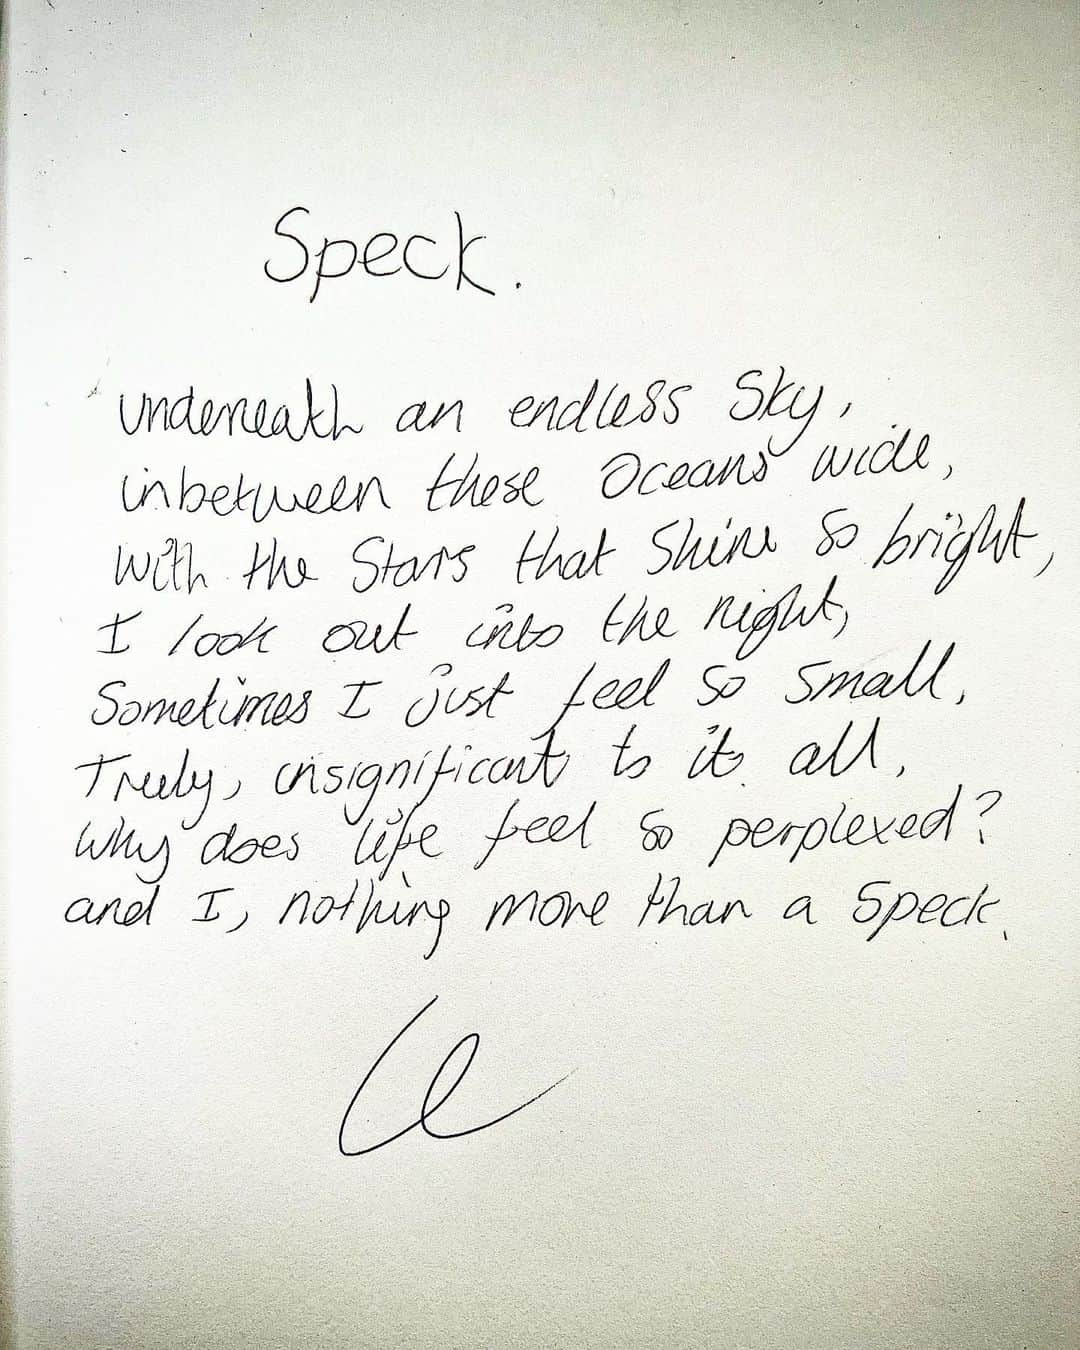 Speck.
underneath an endless Sky,
inbetween these Oceans wide,
with the Stars that Shine So bright,
I look out into the night,
Sometimes I just feel so small,
Truely, insignificant to it all,
Why does life feel so perplexed?
and I, nothing more than a Speck.